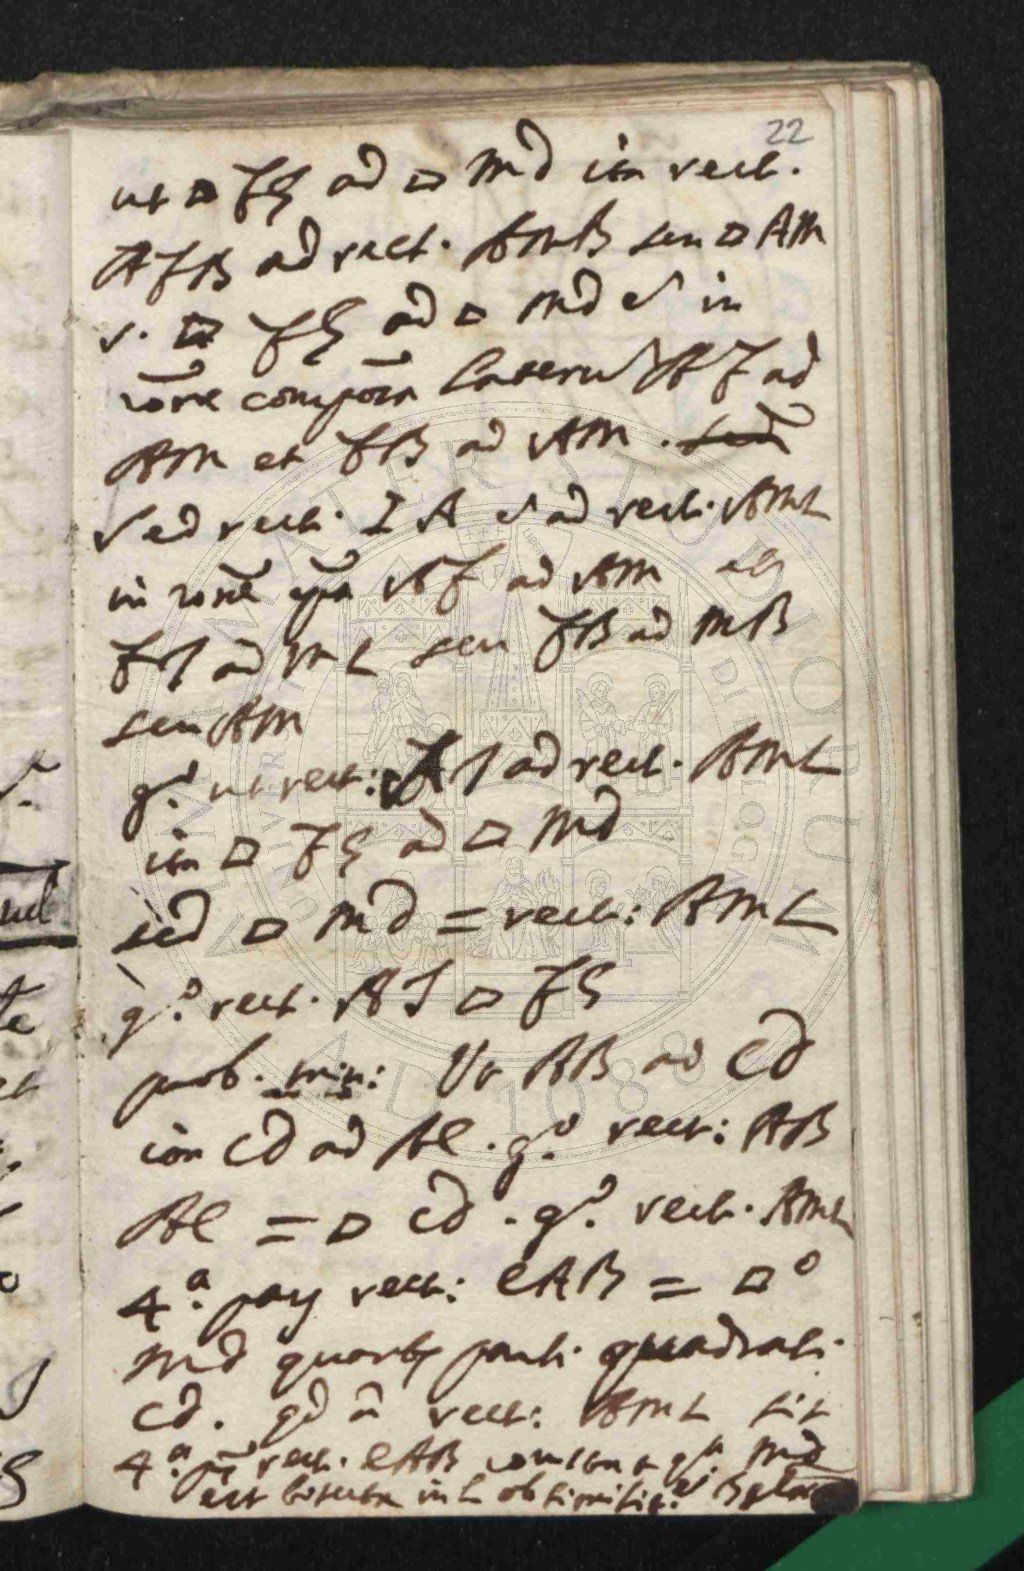 22
ut □ FG ad □ MD ita rect.
AFB ad rect. AMB seu □ AM
s. □ FG ad □ MD est in
rõne compõta laterũ AF ad
AM et FB ad AM. sed
Sed rect. IA est ad rect. AML
in rõne ex AF ad AM
FI ad ML seu FB ad MB
seu AM
g.º ut rect: AI ad rect. AML
ita □ FG ad □ MD
sed □ MD = rect: AML
g.º rect. AI □ FG
prob. min: Ut AB ad CD
ita CD ad AE. g.º rect: AB
AE = □ CD. g.º rect. AML
4.ª pars rect: EAB = □º
MD quartæ parti quadrati
CD. qd ã rect: AML sit
4.ª rect. EAB constat MD
est in L